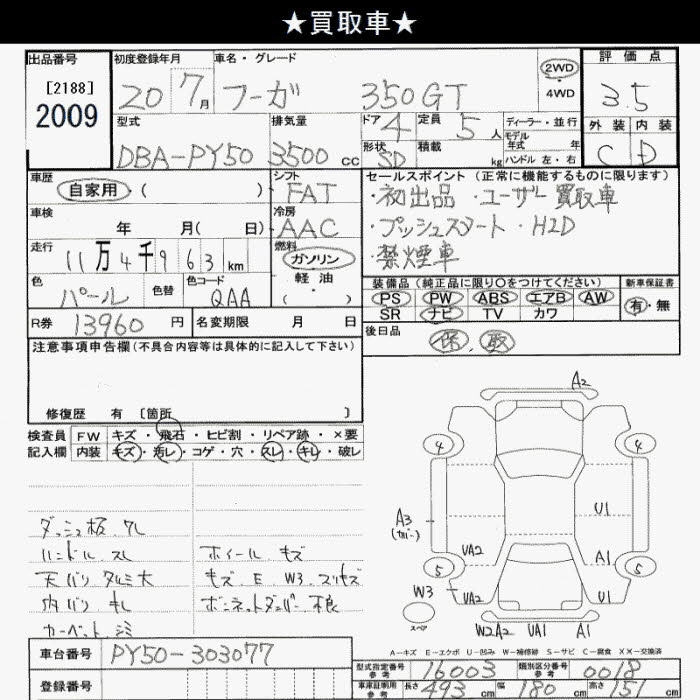 ★買取車★
出品番号 初度登録年月 車名・グレード 評価点
[2188] 2009 20 7月 フーガ 350GT 2WD ・ 4WD 3.5
型式 排気量 ドア 4 定員 5人 ディーラー・並行 外装 内装
モデル年式 年
DBA-PY50 3500cc 形状 SD 積載 kg ハンドル 左・右 C D
車歴 シフト セールスポイント (正常に機能するものに限ります)
自家用 ( ) FAT ・初出品 ・ユーザー買取車
車検 冷房 ・プッシュスタート ・HID
年 月( 日) AAC ・禁煙車
走行 燃料
11万4千963km ガソリン・軽油・( )
色 色替 色コード 装備品 (純正品に限り○をつけてください) 新車保証書
パール QAA PS PW ABS エアB AW 有・無
R券 13960円 名変期限 月 日 SR ナビ TV カワ
注意事項申告欄(不具合内容等は具体的に記入して下さい) 後日品
保、取
修復歴 有 〔箇所 〕
検査員 FW キズ・飛石・ヒビ割・リペア跡・×要
記入欄 内装 キズ・汚レ・コゲ・穴・スレ・キレ・破レ
A2
4 4
A3 U1
VA2 A1
5 5
W3 VA2 U1
スペア W2A2 UA1 A1
ダッシュ板、ケレ
ハンドル、スレ ホイール、キズ
天バリ タルミ大 キズ、E、W3、スリキズ
内バリ キレ ボンネットダンパー不良
カーペット、シミ
A－キズ E－エクボ U－凹み W－補修跡 S－サビ C－腐食 ××－交換済
車台番号 PY50-303077
型式指定番号 参考 16003 類別区分番号 参考 0018
登録番号 車庫証明用 参考 長さ 493cm 幅 180cm 高さ 151cm